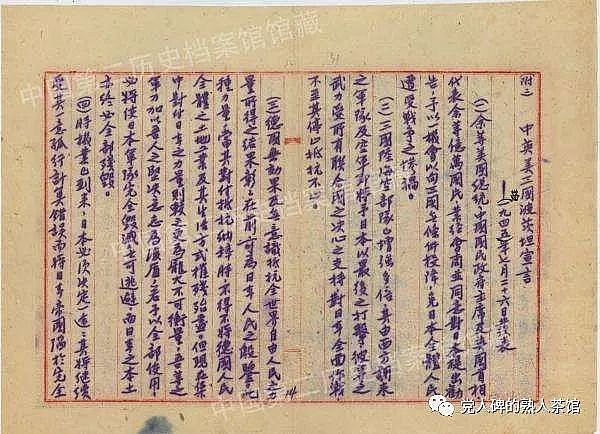 附二 中英美三國波茨坦宣言
一九四五年七月二十六日發表
(一)余等美國總統中國國民政府主席及英國首相
代表余等億萬國民業經會商並同意對日本提出勸
告,予以機會以向三國無條件投降,免日本全體人民
遭受戰爭之慘禍。
(二)三國陸海空部隊已增強多倍,其由西方調來
之軍隊及空軍即將予日本以最後之打擊,彼等之
武力受所有联合民之決心之支持對日本全面作戰
不至其停止抵抗不止。
(三)德國無効果及無意識抵抗全世界自由人民之力
量所得之結果彰彰在前可為日本人民之殷鑒此
種力量當其對付抵抗納粹時不得不將德國人民
全體之土地工業及其生活方式摧殘殆盡。但現在集
中對付日本之力量則較更為龐大不可衡量。吾等之
軍力加以吾人之堅決意志為後盾之若予以全部使用
必將使日本軍隊完全毀滅無可逃避,而日本之本土
亦終必全部殘毀。
(四)時機業已到來,日本必須決定一途,其將繼續
受其一意孤行計算錯誤而將日本帝國陷於完全
14
中国第二历史档案馆馆藏
党人碑的熟人茶馆